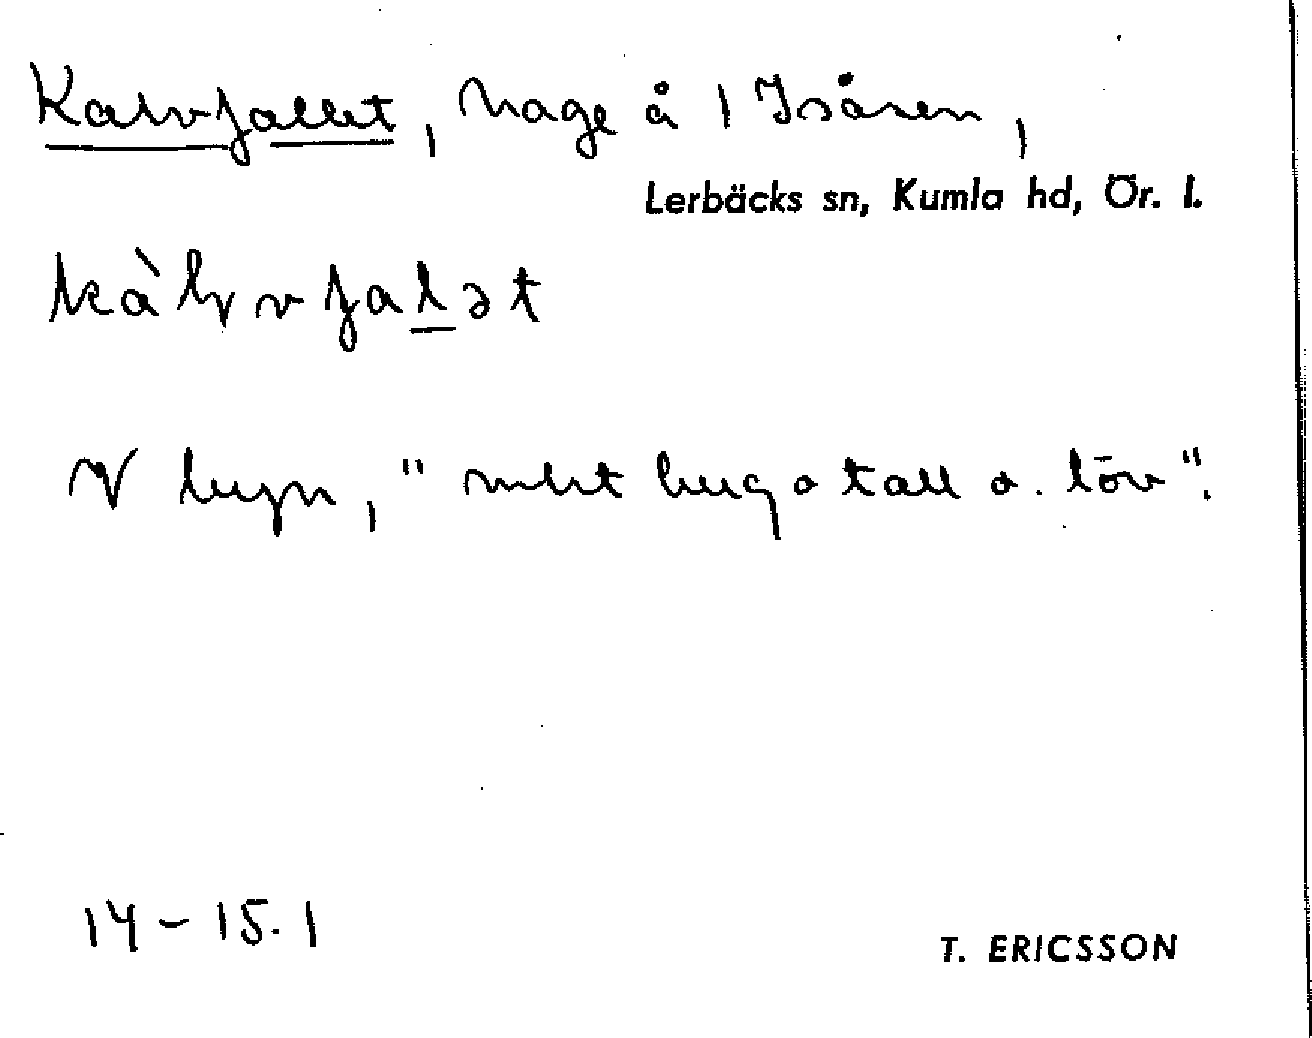 Kalvfallet, hage å 1 Isåsen,
Lerbäcks sn, Kumla hd, Ör. l.
kàlvfalət
V byn, " hugo tall o. löv".
14 – 15. 1
T. ERICSSON